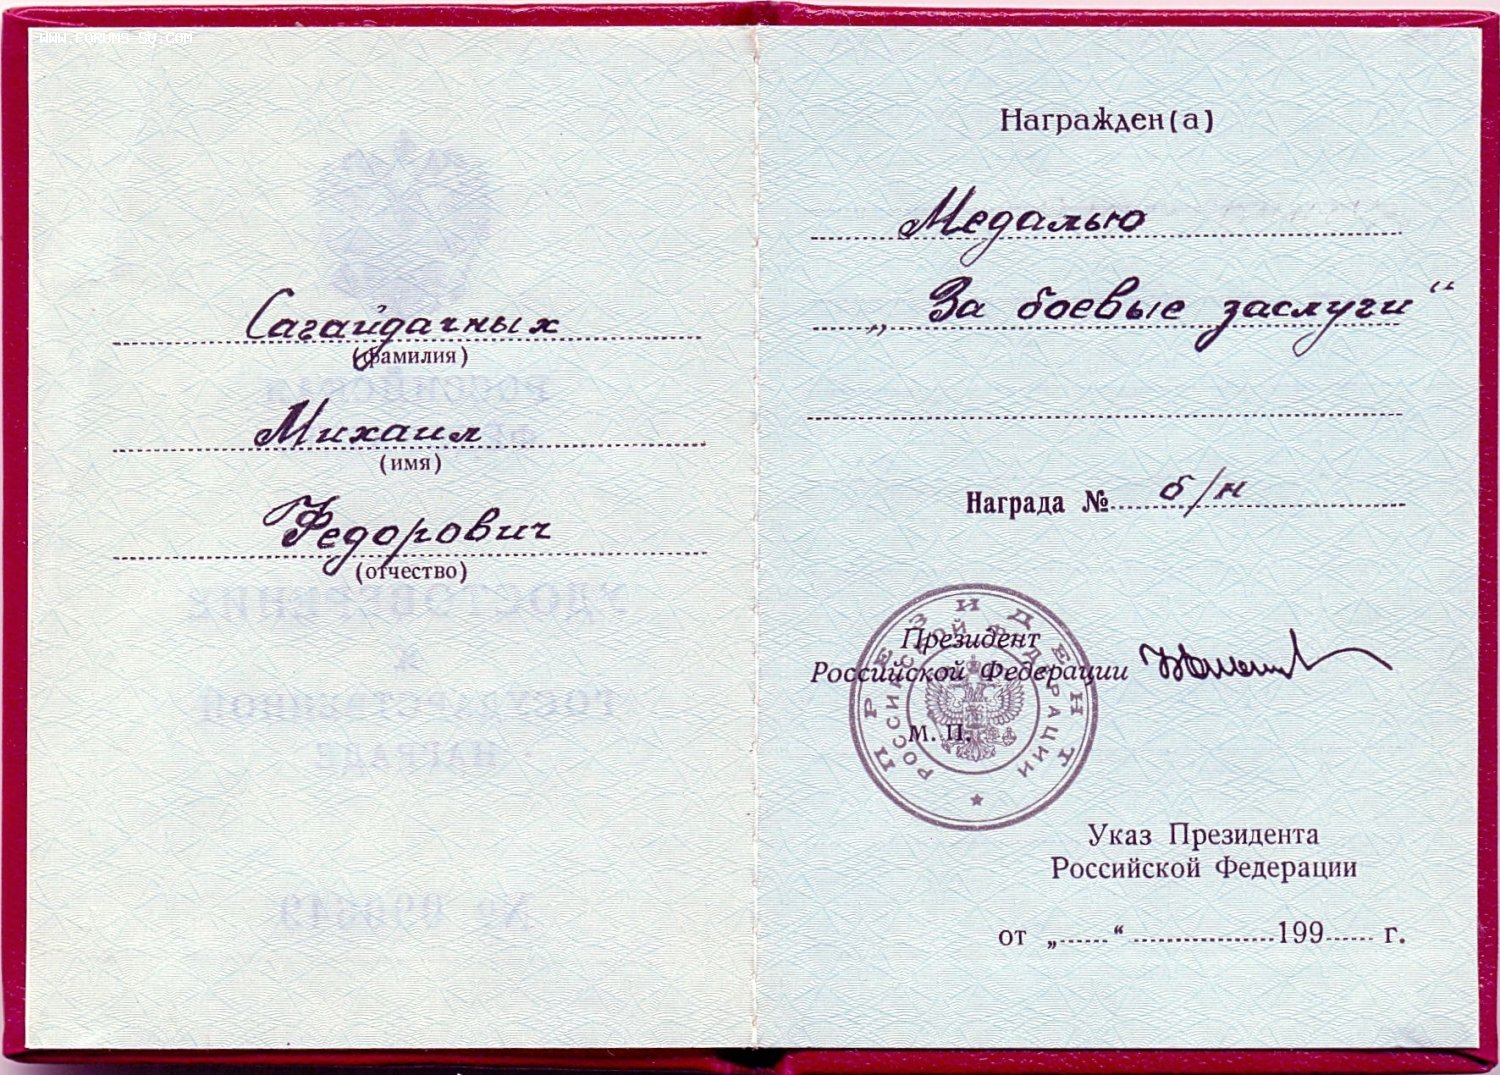 www.forums-su.com
Сагайдачных
(фамилия)
Михаил
(имя)
Федорович
(отчество)
Награжден(а)
Медалью
„За боевые заслуги“
Награда № б/н
Президент
Российской Федерации
М. П.
ПРЕЗИДЕНТ
РОССИЙСКОЙ ФЕДЕРАЦИИ
Указ Президента
Российской Федерации
от „......“ ..................199...... г.
РОССИЙСКАЯ
УДОСТОВЕРЕНИЕ
К
ГОСУДАРСТВЕННОЙ
НАГРАДЕ